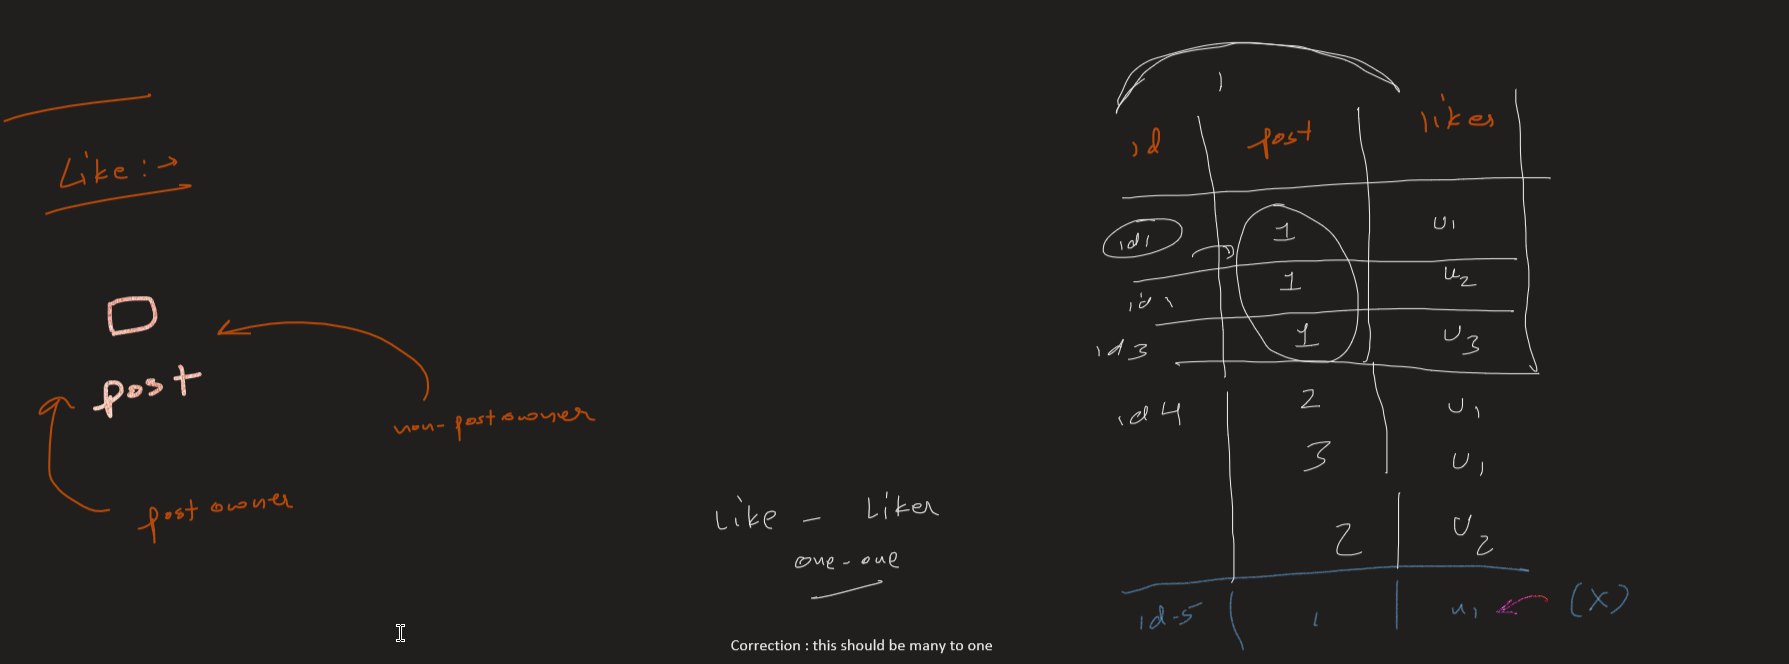 Like :→
post
non-post owner
post owner
Like - Liker
one-one
Correction : this should be many to one
1
id post likes
id1 1 u1
id1 1 u2
id3 1 u3
id4 2 u1
3 u1
2 u2
id-5 1 u1 (x)